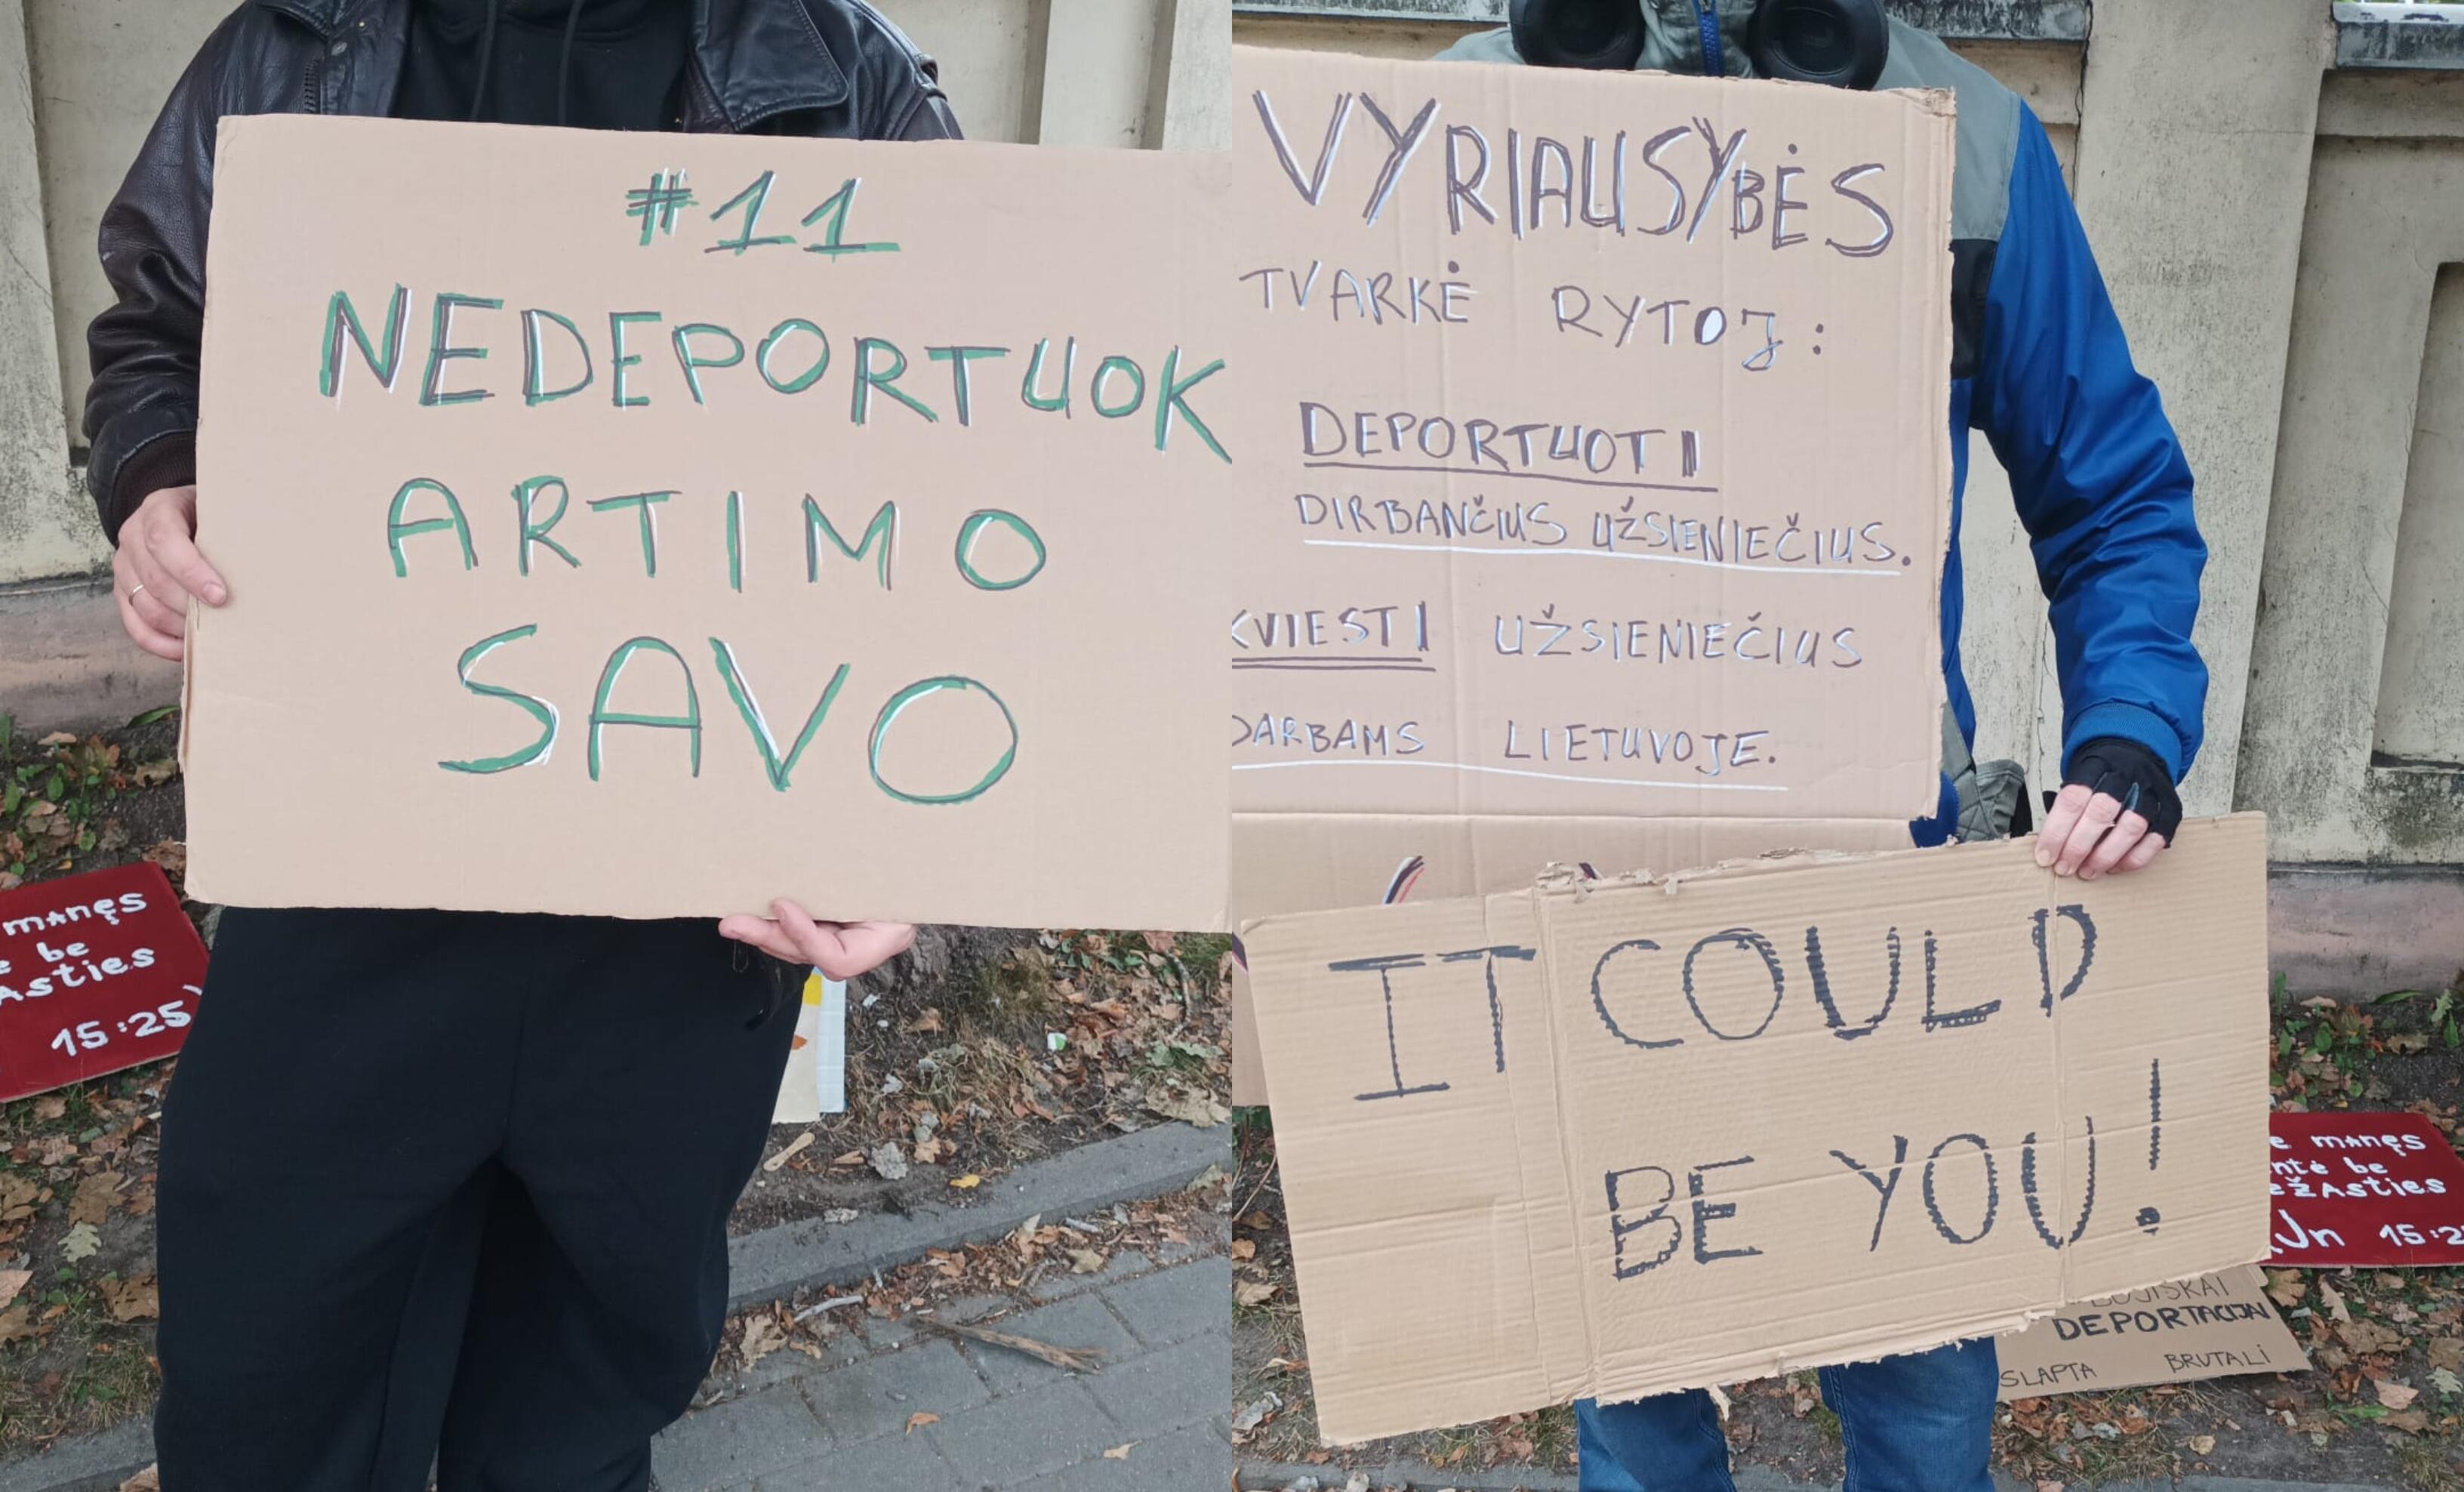 #11
NEDEPORTUOK
ARTIMO
SAVO
manęs
be
15:25
VYRIAUSYBĖS
TVARKĖ RYTOJ:
DEPORTUOTI
DIRBANČIUS UŽSIENIEČIUS.
KVIESTI UŽSIENIEČIUS
DARBAMS LIETUVOJE.
IT COULD
BE YOU!
manęs
be
15:2
DEPORTACIJAI
SLAPTA BRUTALI